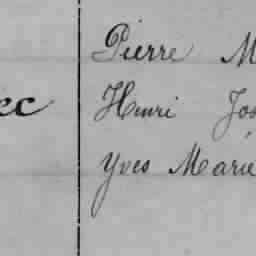 Pierre M
ec Henri Jos
Yves Marie